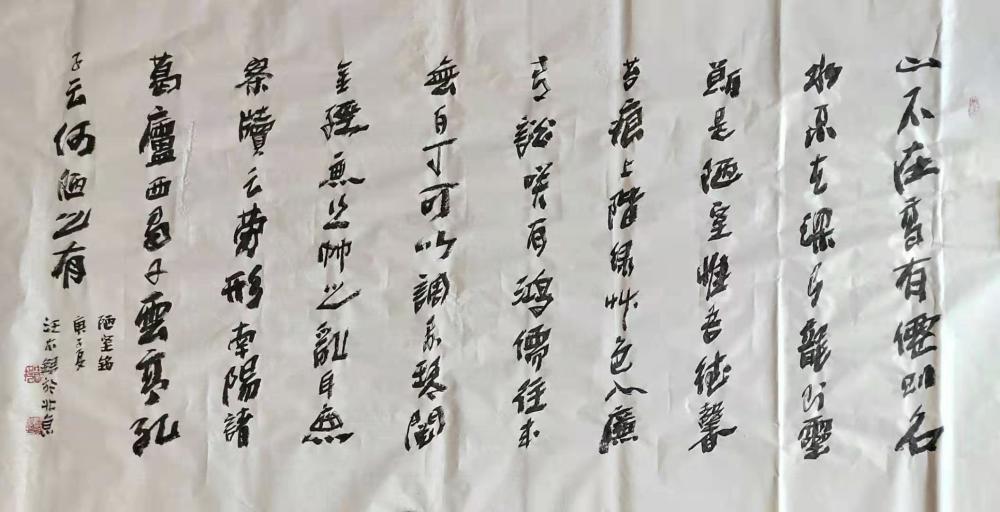 山不在高有僊則名
水不在深有龍則靈
斯是陋室惟吾德馨
苔痕上階緑艸色入簾
青談咲有鴻儒往来
無白丁可以調素琴閱
金經無丝竹之亂耳無
案牘之勞形南陽諸
葛廬西蜀子雲亭孔
子云何陋之有
陋室銘
庚子夏
汪於北京